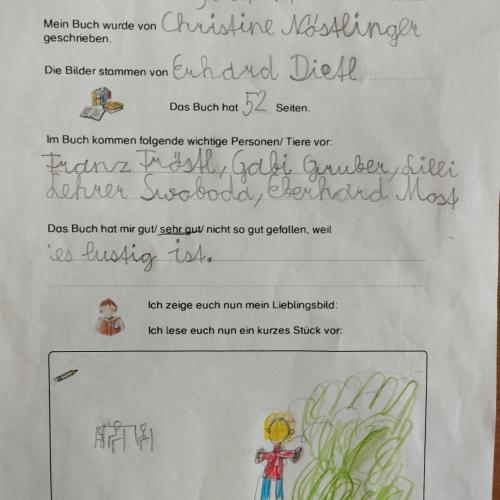 Mein Buch wurde von Christine Nöstlinger
geschrieben.
Die Bilder stammen von Erhard Dietl
Das Buch hat 52 Seiten.
Im Buch kommen folgende wichtige Personen/ Tiere vor:
Franz Fröstl, Gabi Gruber, Lilli
Lehrer Swoboda, Eberhard Most
Das Buch hat mir gut/ sehr gut/ nicht so gut gefallen, weil
es lustig ist.
Ich zeige euch nun mein Lieblingsbild:
Ich lese euch nun ein kurzes Stück vor: